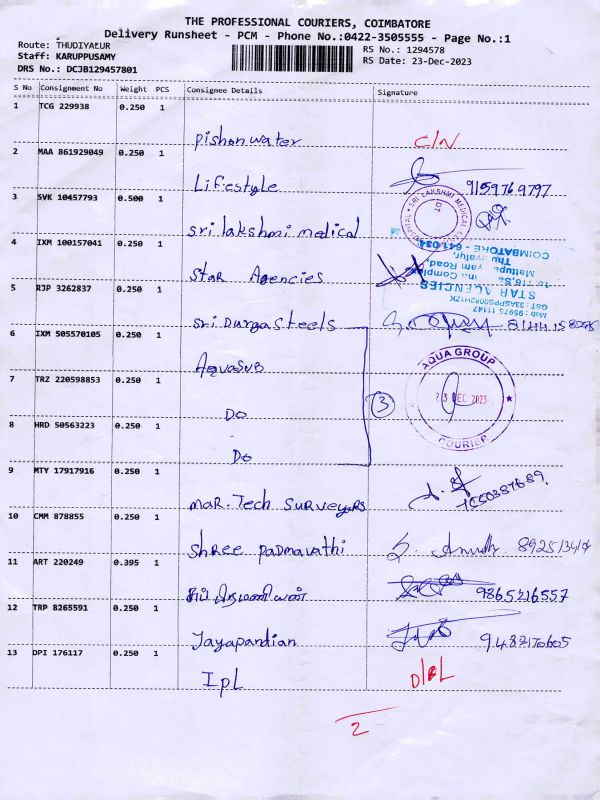 THE PROFESSIONAL COURIERS, COIMBATORE
Delivery Runsheet - PCM - Phone No.:0422-3505555 - Page No.:1
Route: THUDIYALUR
RS No.: 1294578
Staff: KARUPPUSAMY
RS Date: 23-Dec-2023
DRS No.: DCJB129457801
S No Consignment No Weight PCS Consignee Details Signature
1 TCG 229938 0.250 1
pishon water C/N
2 MAA 861929049 0.250 1
Lifestyle 9159769797
3 SVK 10457793 0.500 1
sri lakshmi medical
4 IXM 100157041 0.250 1
Star Agencies
COIMBATORE - 641 034
STAR AGENCIES
5 RJP 3262837 0.250 1
Sri Durga Steels
6 IXM 505570105 0.250 1
Aquasub
7 TRZ 220598853 0.250 1
Do
3
AQUA GROUP
23 DEC 2023
COURIER
8 HRD 50563223 0.250 1
Do
9 MTY 17917916 0.250 1
mar. Tech Surveyors
10 CMM 878855 0.250 1
Shree padmavathi
11 ART 220249 0.395 1
9865216557
12 TRP 8265591 0.250 1
Jayapandian
13 DPI 176117 0.250 1
IpL D/L
2